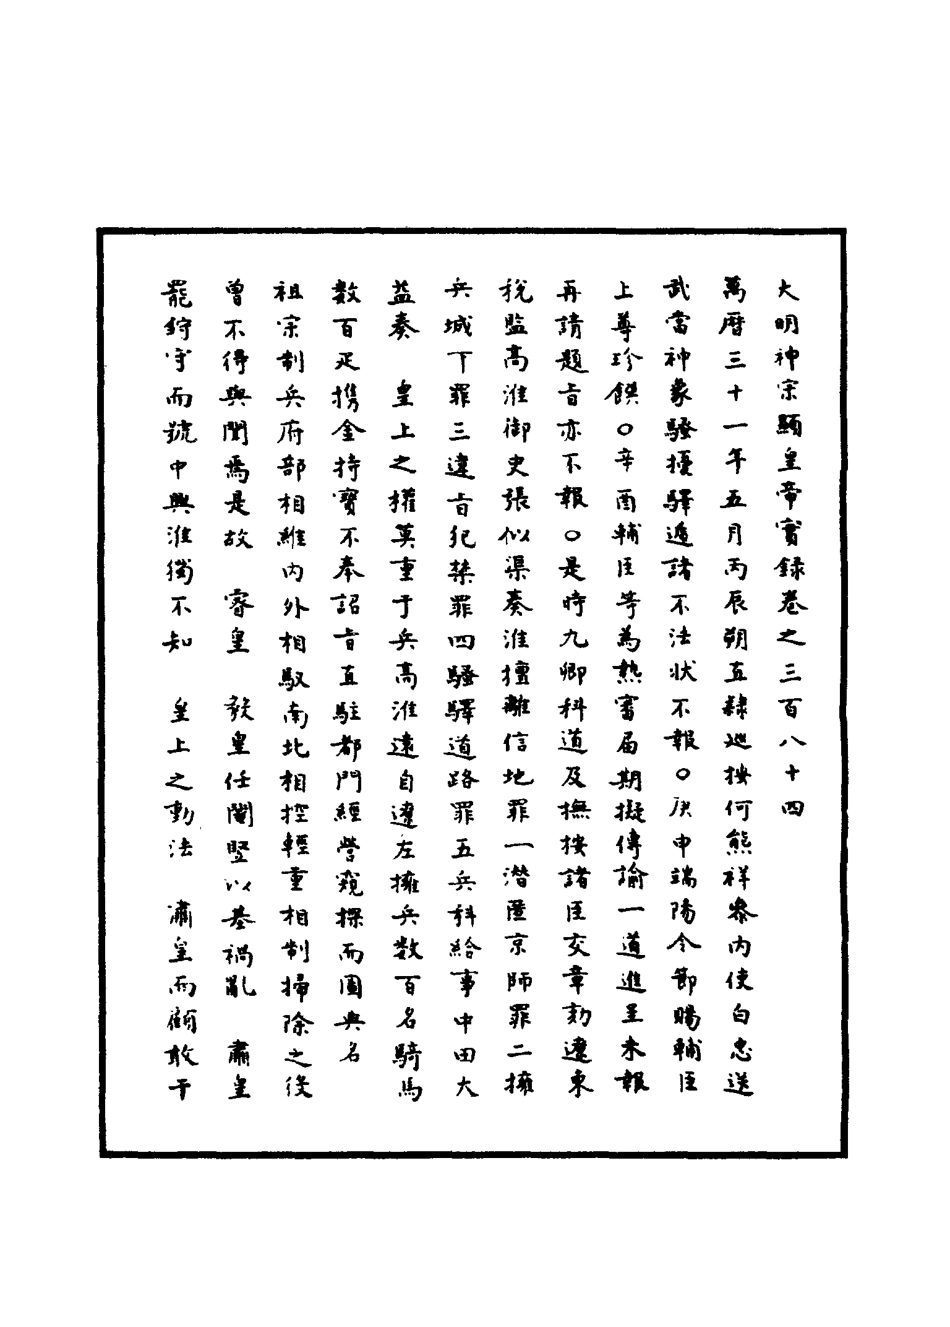 大明神宗顯皇帝實録卷之三百八十四
萬曆三十一年五月丙辰朔直隸巡按何熊祥叅内使白忠送
武當神象騷擾驛遞諸不法状不報○庚申端陽令節賜輔臣
上尊珍饌○辛酉輔臣等為熱審届期擬傳諭一道進呈未報
再請題㫖亦不報○是時九卿科道及撫按諸臣交章劾遼東
稅監髙淮御史張似渠奏淮擅離信地罪一潜匿京師罪二擁
兵城下罪三違㫖犯禁罪四騷驛道路罪五兵科給事中田大
益奏　皇上之權莫重于兵髙淮遠自遼左擁兵数百名騎馬
数百疋携金持寶不奉詔㫖直駐都門經營窺探而圖與名
祖宗制兵府部相維内外相馭南北相控輕重相制掃除之後
曾不得與聞焉是故　睿皇　毅皇任閹竪以基禍亂　肅皇
罷鎊守而號中興淮獨不知　皇上之動法　肅皇而顧敢干